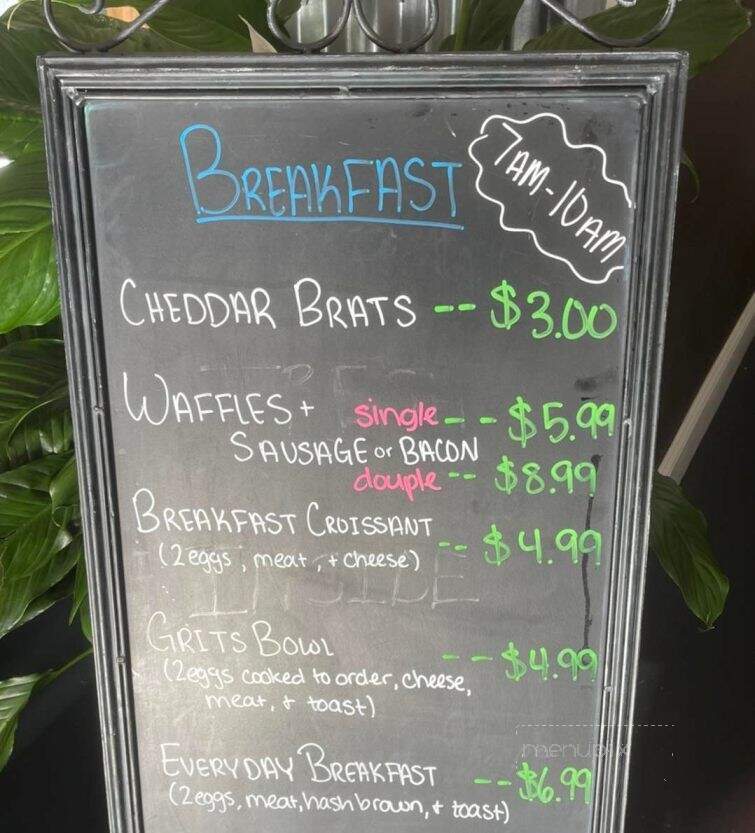 BREAKFAST
7AM-10AM
CHEDDAR BRATS -- $3.00
WAFFLES + single -- $5.99
SAUSAGE or BACON
douple -- $8.99
BREAKFAST CROISSANT -- $4.99
(2eggs, meat, + cheese)
GRITS BOWL -- $4.99
(2eggs cooked to order, cheese,
meat, + toast)
EVERYDAY BREAKFAST -- $6.99
(2eggs, meat, hash brown, + toast)